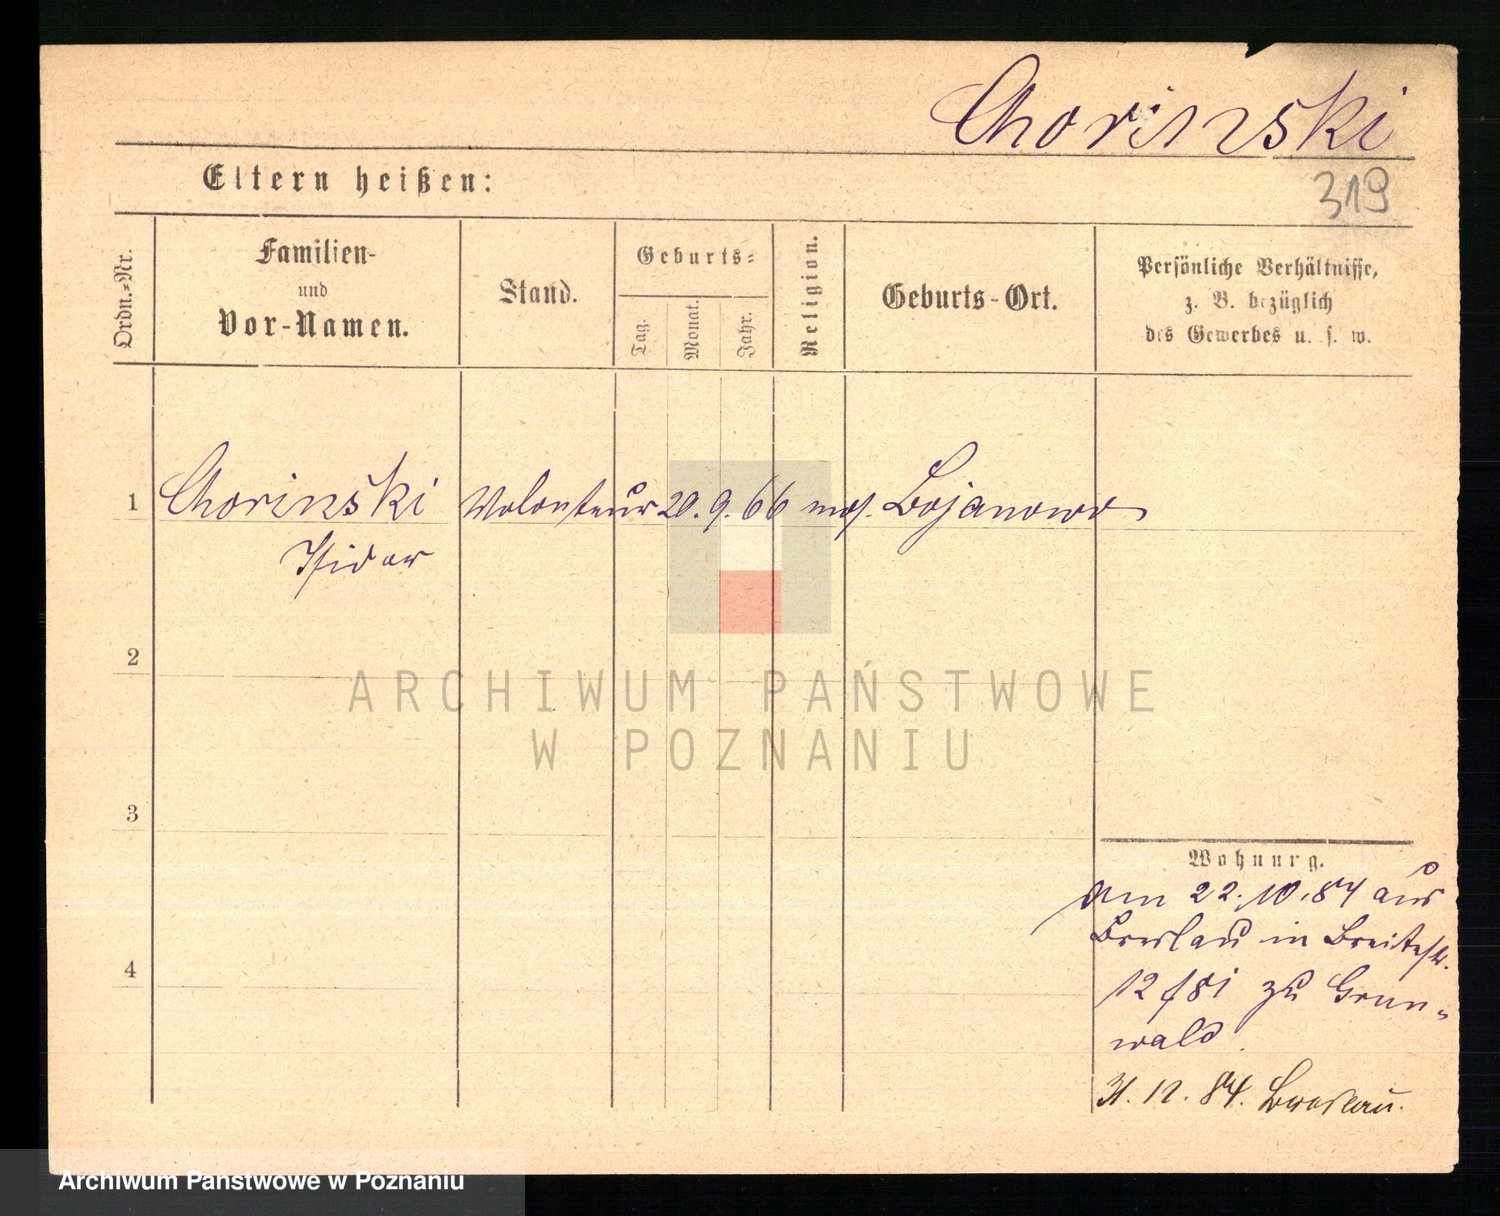 Chorinski
Eltern heißen:
319
Ordn.-Nr.
Familien-
und
Vor-Namen.
Stand.
Geburts-
Tag.
Monat.
Jahr.
Religion.
Geburts-Ort.
Persönliche Verhältnisse,
z. B. bezüglich
des Gewerbes u. s. w.
1 Chorinski Volonteur 20. 9. 66 mos. Bojanowo
Isidor
2
3
4
Wohnung.
Am 22.10.84 aus
Breslau in Breitestr.
12 / 81 zu Grun-
wald.
31. 12. 84. Breslau.
ARCHIWUM PAŃSTWOWE
W POZNANIU
Archiwum Państwowe w Poznaniu